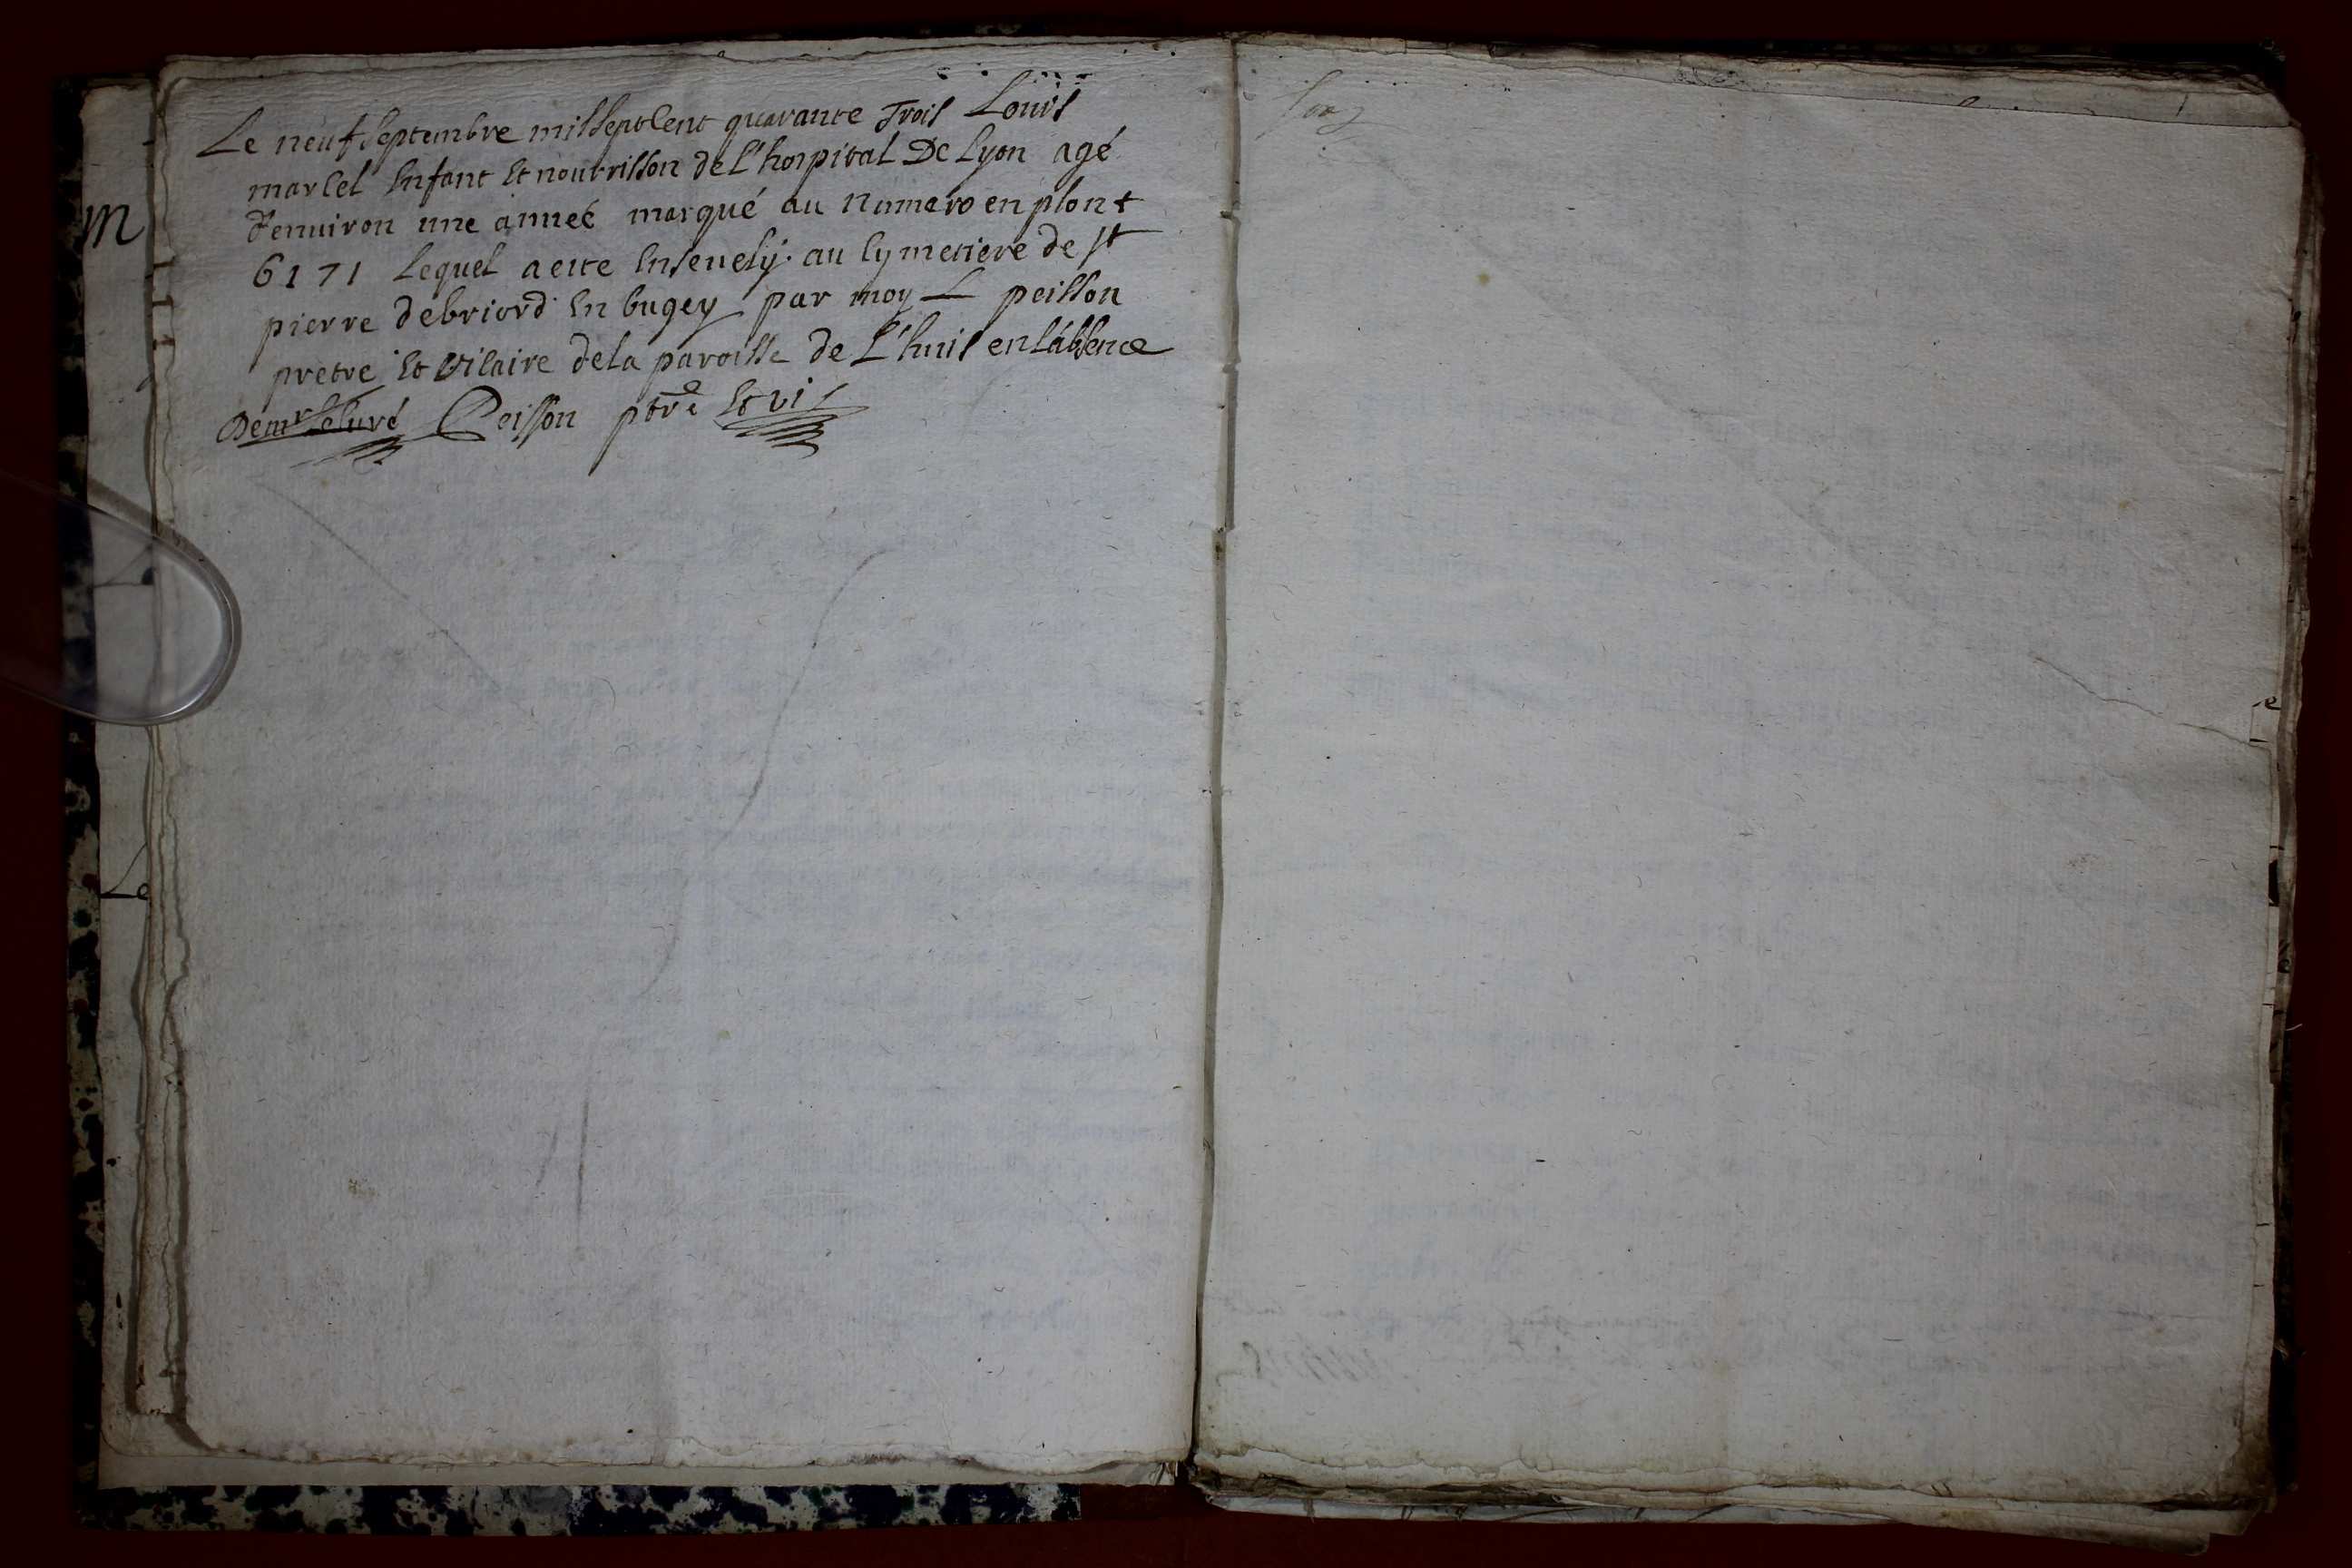 Le neuf septembre mil sept cent quarante Trois Louis
marcel enfant et nourrisson de L'hospital De Lyon agé
d'enuiron une anneé marqué au numero en plont
6171 Lequel a este enseuely au cymetiere de st
pierre de briord en bugey par moy L peisson
pretre et vicaire de la paroisse de L'huis en l'absence
De mr le curé Peisson ptre et vi
m
Le